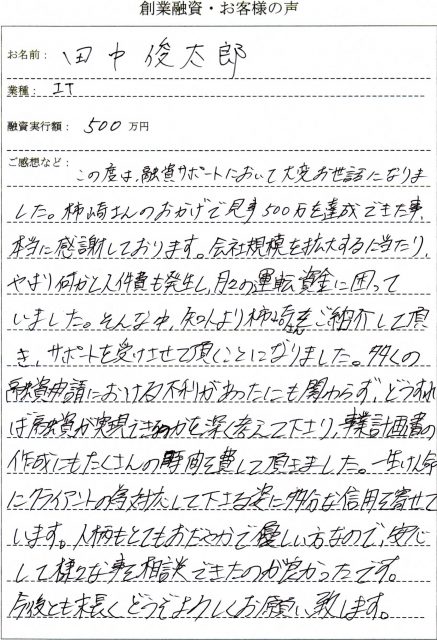 創業融資・お客様の声
お名前： 田中俊太郎
業種： IT
融資実行額： 500 万円
ご感想など： この度は、融資サポートにおいて大変お世話になりま
した。柿崎さんのおかげで見事500万を達成できた事、
本当に感謝しております。会社規模を拡大するに当たり、
やはり何かと人件費も発生し、月々の運転資金に困って
いました。そんな中、知人より柿崎さんをご紹介して頂
き、サポートを受けさせて頂くことになりました。多くの
融資申請における不利があったにも関わらず、どうすれ
ば融資が実現できるのかを深く考えて下さり、事業計画書の
作成にもたくさんの時間を費して頂きました。一生けん命
にクライアントの為対応して下さる姿に多分な信用を寄せて
います。人柄もとてもおだやかで優しい方なので、安心
して様々な事を相談できたのが良かったです。
今後とも末長くどうぞよろしくお願い致します。